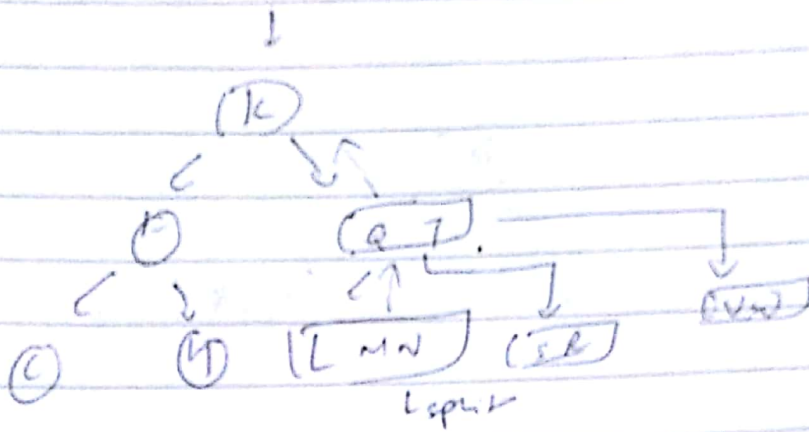 K
F Q T
C H L M N S R V W
split